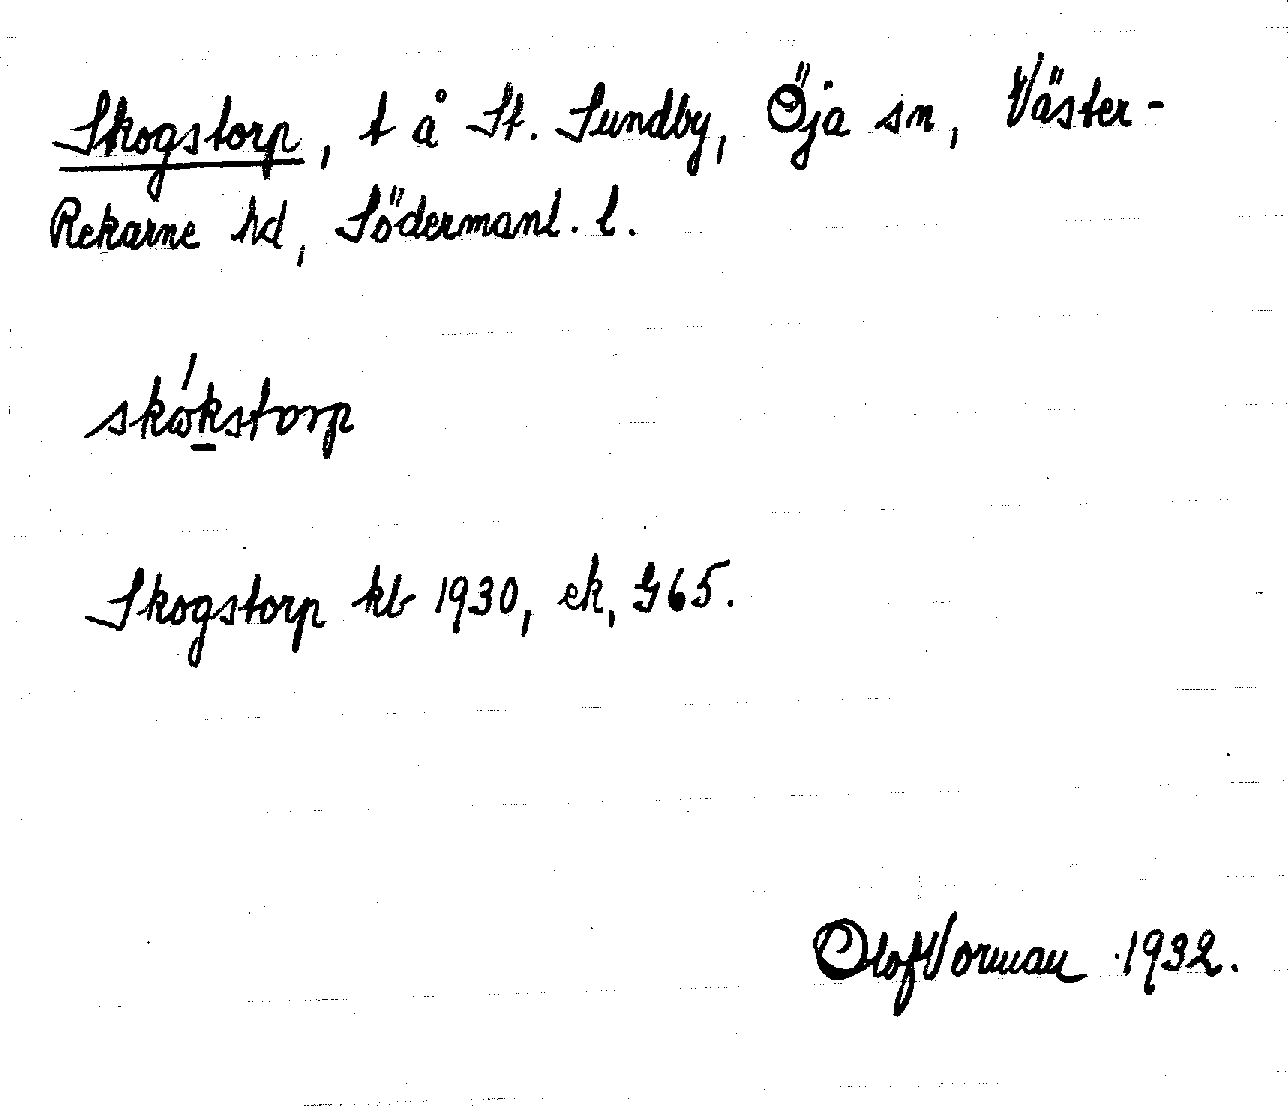 Skogstorp, t å St. Sundby, Öja sn, Väster-
Rekarne hd, Södermanl. l.
skώkstorp
Skogstorp kb 1930, ek, G65.
Olof Vorman 1932.